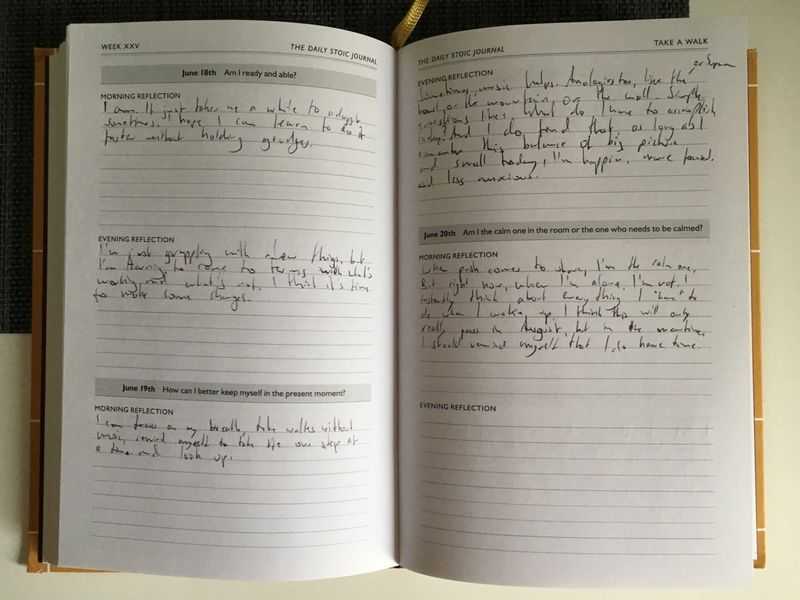 WEEK XXV
THE DAILY STOIC JOURNAL
June 18th Am I ready and able?
MORNING REFLECTION
I am. It just takes me a while to adapt
sometimes. I hope I can learn to do it
faster without holding grudges.
EVENING REFLECTION
I'm just grappling with a few things, but
I'm starting to come to terms with what's
working and what's not. I think it's time
to make some changes.
June 19th How can I better keep myself in the present moment?
MORNING REFLECTION
I can focus on my breath, take walks without
music, remind myself to take life one step at
a time and look up.
THE DAILY STOIC JOURNAL
TAKE A WALK
EVENING REFLECTION
Sometimes, music helps. Analogies too, like the
or the mountain, or the wall. Simple
questions like: What do I have to accomplish
today? And I do find that, as long as I
remember this balance of big picture
and small today, I'm happier, more focused
and less anxious.
June 20th Am I the calm one in the room or the one who needs to be calmed?
MORNING REFLECTION
When push comes to shove, I'm the calm one.
But right now, when I'm alone, I'm not. I
instantly think about everything I "have" to
do when I wake up. I think this will only
really pass in August, but in the meantime,
I should remind myself that I do have time.
EVENING REFLECTION